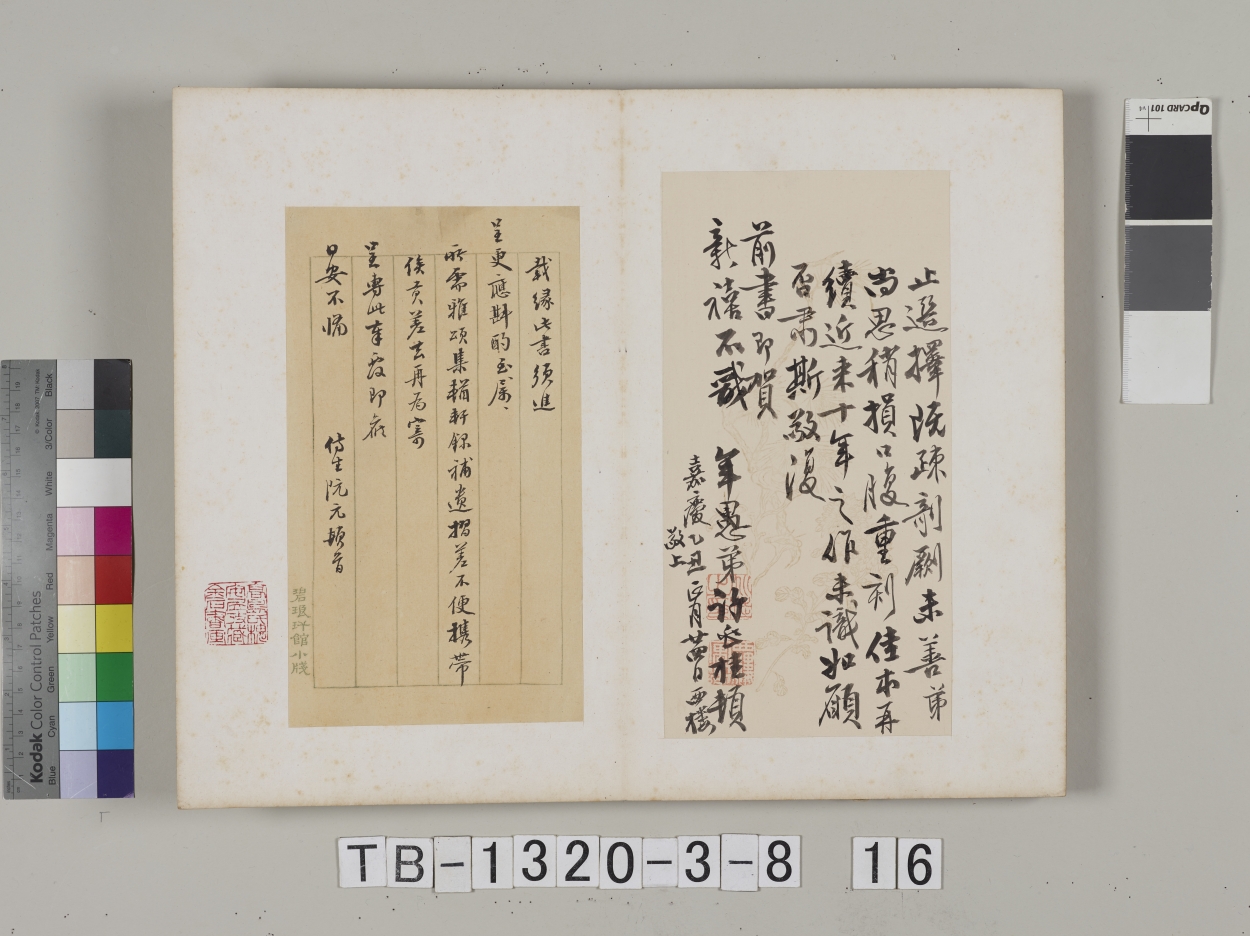 止選擇既疎剞劂未善弟
尚思稍損口腹重刻佳本再
續近來十年之作未識如願
否肅斯敬復
前書即賀
新禧不戩
年愚弟許兆桂頓
嘉慶乙丑正月廿四日西樓
敬上
載緣此書須進
呈更應斟酌至屬〻
所需雅頌集輶軒錄補遺摺差不便攜帶
俟貢差去再為寄
呈專此奉覆即頌
日安不備
侍生阮元頓首
碧琅玕館小牋
TB-1320-3-8 16
QpCARD 101
Kodak Color Control Patches
Blue Cyan Green Yellow Red Magenta White 3/Color Black